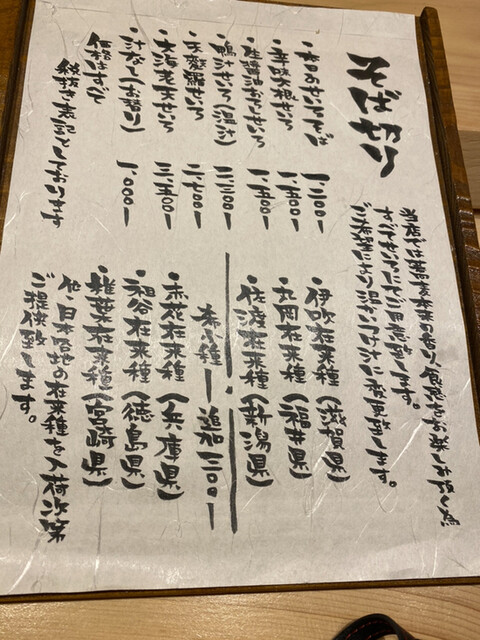 そば切り
当店では蕎麦本来の香り、食感をお楽しみ頂く為
すべてせいろにてご用意致します。
ご希望により温かいつけ汁に致します。
・本日のせいろそば
・辛味大根せいろ
せいろ
・鴨汁せいろ(温汁)
・天麩羅せいろ
・大海老天せいろ
・汁なし(お替り) 一、〇〇〇ー
価格はすべて
税抜き表記としております
・伊吹在来種(滋賀県)
・丸岡在来種(福井県)
・佐渡在来種(新潟県)
希少種ー追加二〇〇ー
・赤花在来種(兵庫県)
・祖谷在来種(徳島県)
・椎葉在来種(宮崎県)
他、日本各地の在来種を入荷次第
ご提供致します。